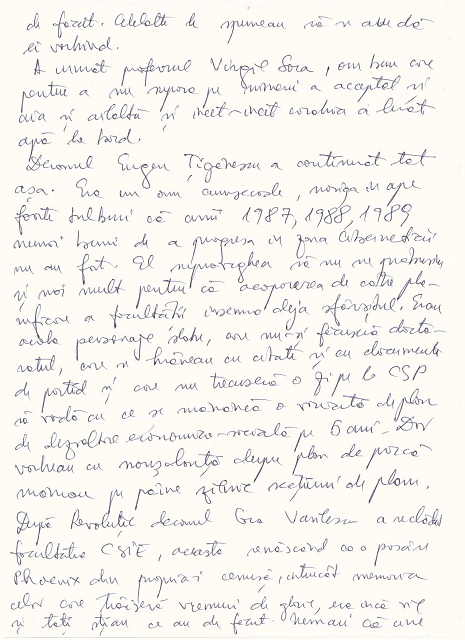 de făcut. Celelalte le spuneau să n aibă dă
ei vorbind.
A urmat profesorul Virgil Sora, om bun care
pentru a nu supăra pe nimeni a acceptat și
aia și ailaltă și încet-încet corabia a luat
apă la bord.
Decanul Eugen Țigănescu a continuat tot
așa. Era un om cumsecade, naviga în ape
foarte tulburi că anii 1987, 1988, 1989
numai buni de a progresa în zona Ciberneticii
nu au fost. El supraveghea să nu ne prăbușim
și mai mult pentru că acoperirea de către pla-
nificare a facultății însemna deja sfârșitul. Erau
acolo personaje slabe, care nu-și făcuseră docto-
ratul, care se hrăneau cu citate și cu documente
de partid și care nu trecuseră o zi pe la CSP
să vadă cu ce se mănâncă o variantă de plan
de dezvoltare economico-socială pe 5 ani. Dar
vorbeau cu nonșalanță despre plan de parcă
mâncau pe pâine zilnic secțiuni de plan.
După Revoluție decanul Gică Vasilescu a reclădit
facultatea CSIE, aceasta renăscând ca o pasăre
Phoenix din propria-i cenușă, întrucât memoria
celor care trăiseră vremuri de glorie, era încă vie
și toți știau ce au de făcut. Numai că une